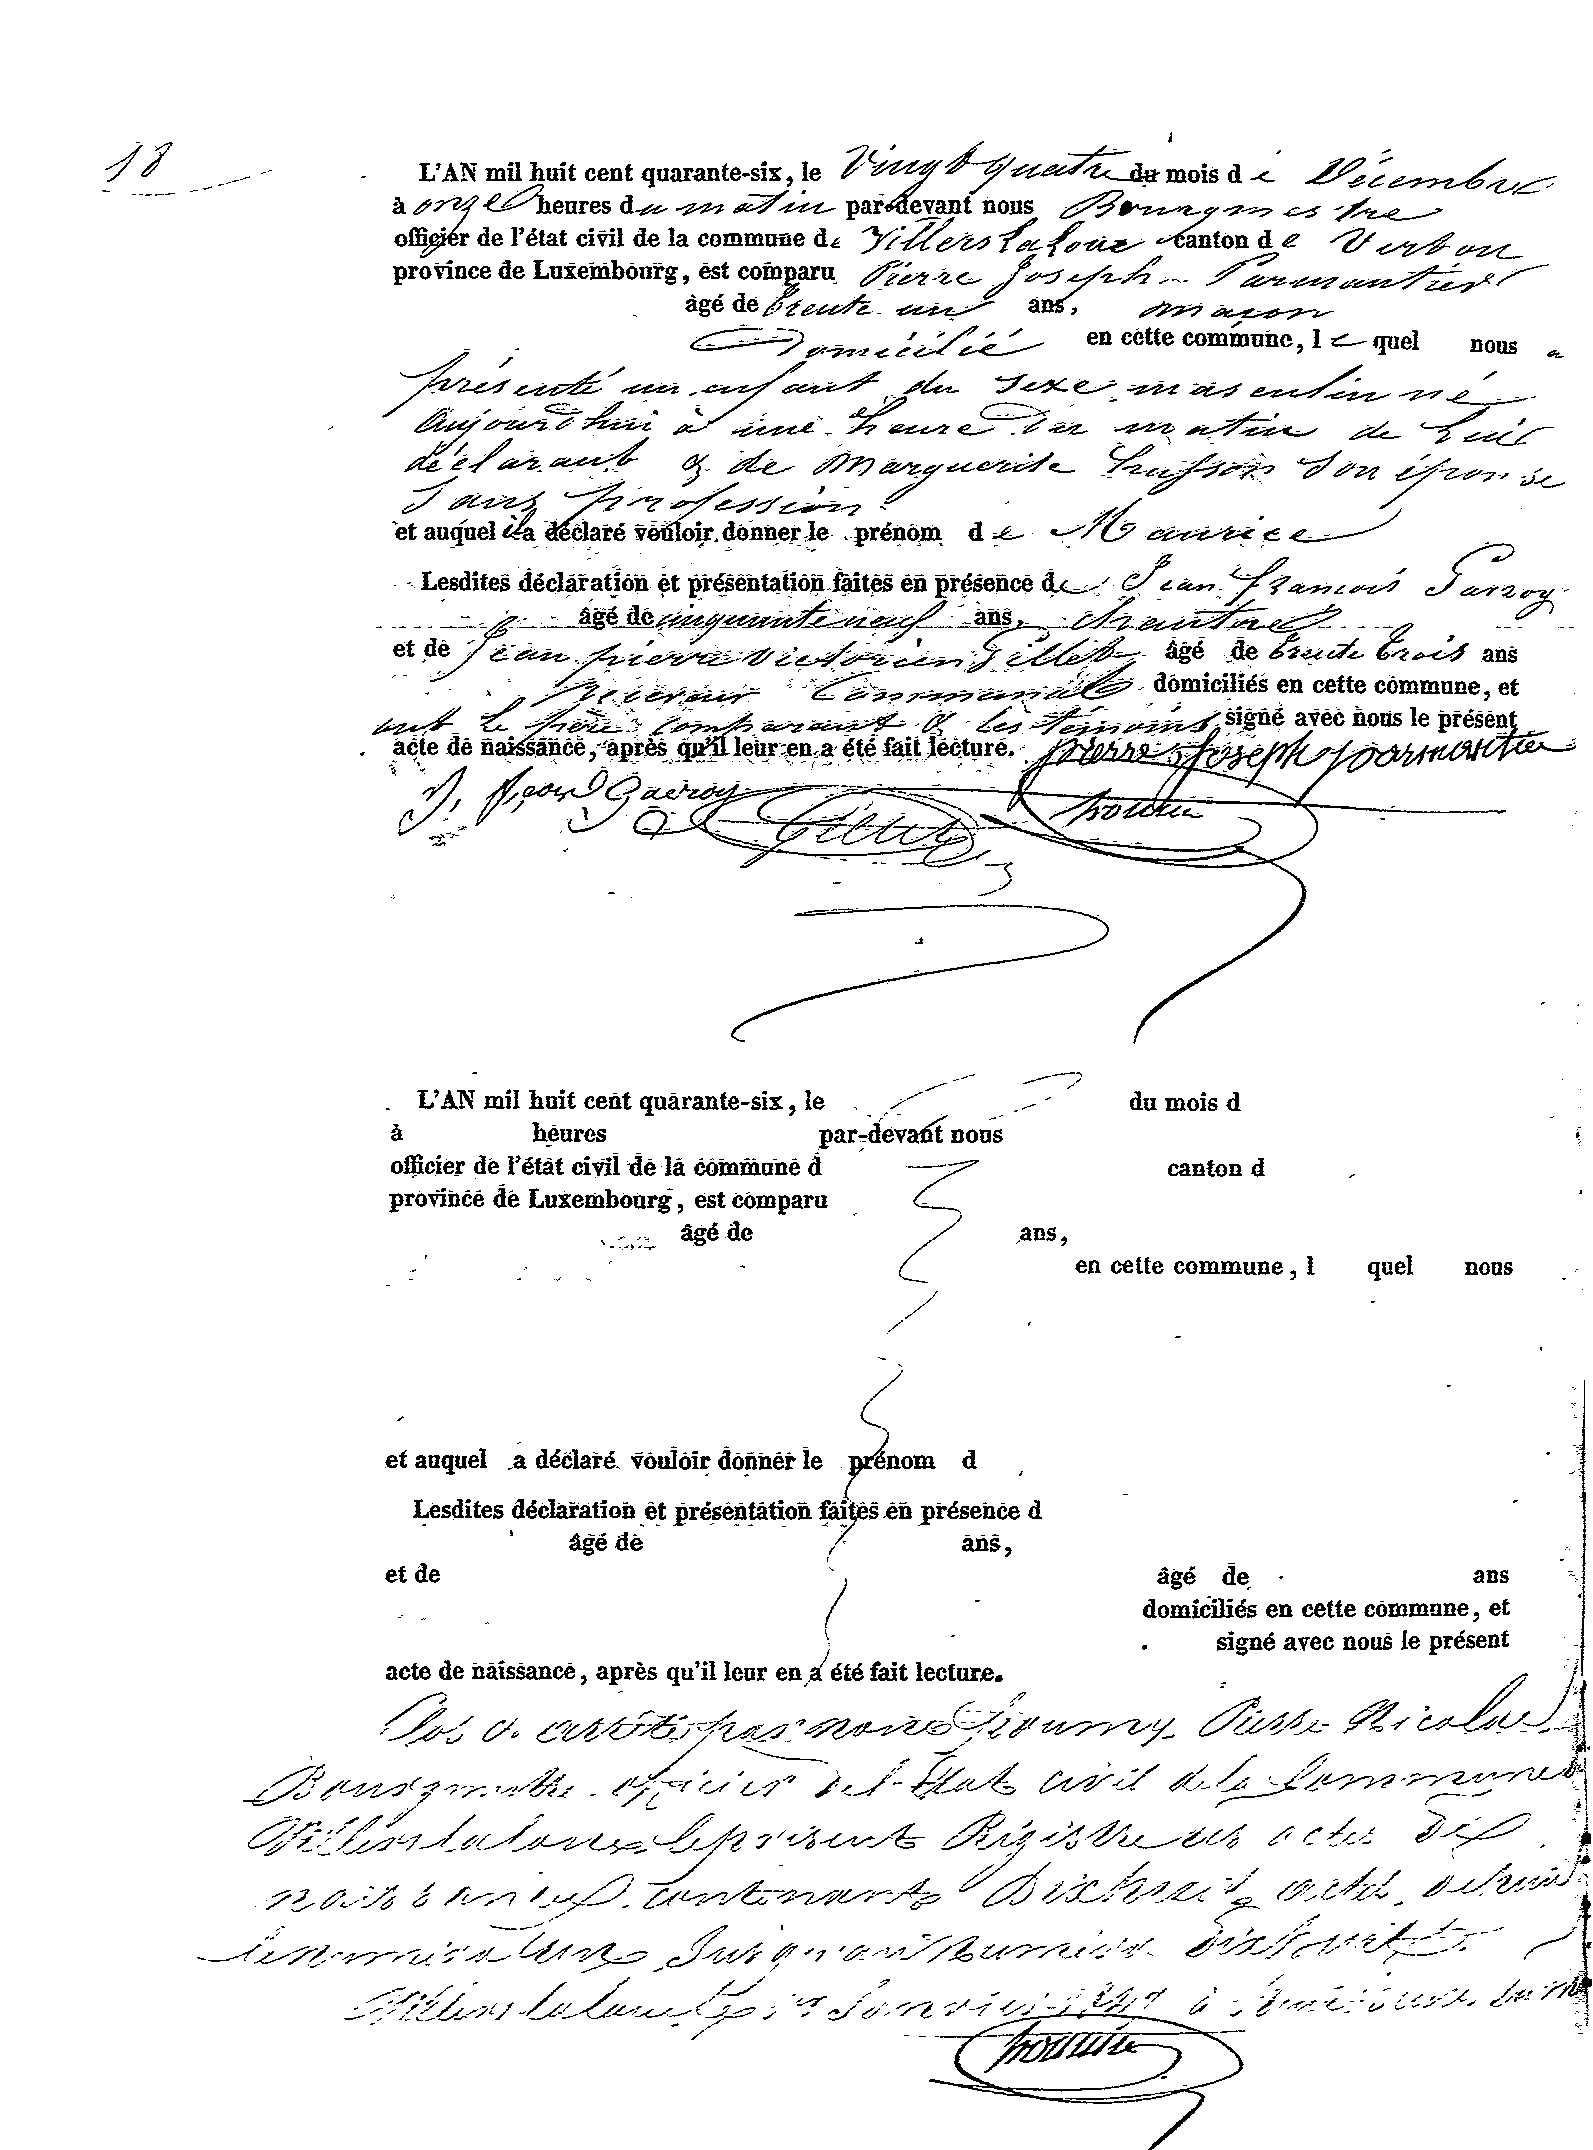 18
L'AN mil huit cent quarante-six, le Vingt quatre du mois de Décembre
à onze heures du matin par-devant nous Bourgmestre
officier de l'état civil de la commune de Villers la loue canton de Virton
province de Luxembourg, est comparu Pierre Joseph Parmantier
âgé de trente un ans, maçon
Domicilié en cette commune, le quel nous a
présenté un enfant du sexe masculin né
aujourd'hui à une heure du matin de lui
déclarant & de Marguerite husson Son épouse
Sans profession
et auquel il a déclaré vouloir donner le prénom de Maurice
Lesdites déclaration et présentation faites en présence de Jean françois
âgé de cinquante neuf ans,
et de Jean pierre Victorien Gillet âgé de trente trois ans
Receveur Communal domiciliés en cette commune, et
ont le père comparant & les témoins signé avec nous le présent
acte de naissance, après qu'il leur en a été fait lecture. pierre Joseph parmantier
Gillet
L'AN mil huit cent quarante-six, le du mois d
à heures par-devant nous
officier de l'état civil de la commune d canton d
province de Luxembourg, est comparu
âgé de ans,
en cette commune, l quel nous
et auquel a déclaré vouloir donner le prénom d
Lesdites déclaration et présentation faites en présence d
âgé de ans,
et de âgé de ans
domiciliés en cette commune, et
signé avec nous le présent
acte de naissance, après qu'il leur en a été fait lecture.
Clos & arrêté par nous Pierre Nicolas
Bourgmestre officier de l'Etat civil de la Commune
Villers la loue le présent Régistre des actes de
naissances contenant Dix huit actes depuis
le numéro un Jusqu'au numéro dix huit
Villers la loue le 1er Janvier 1847 à